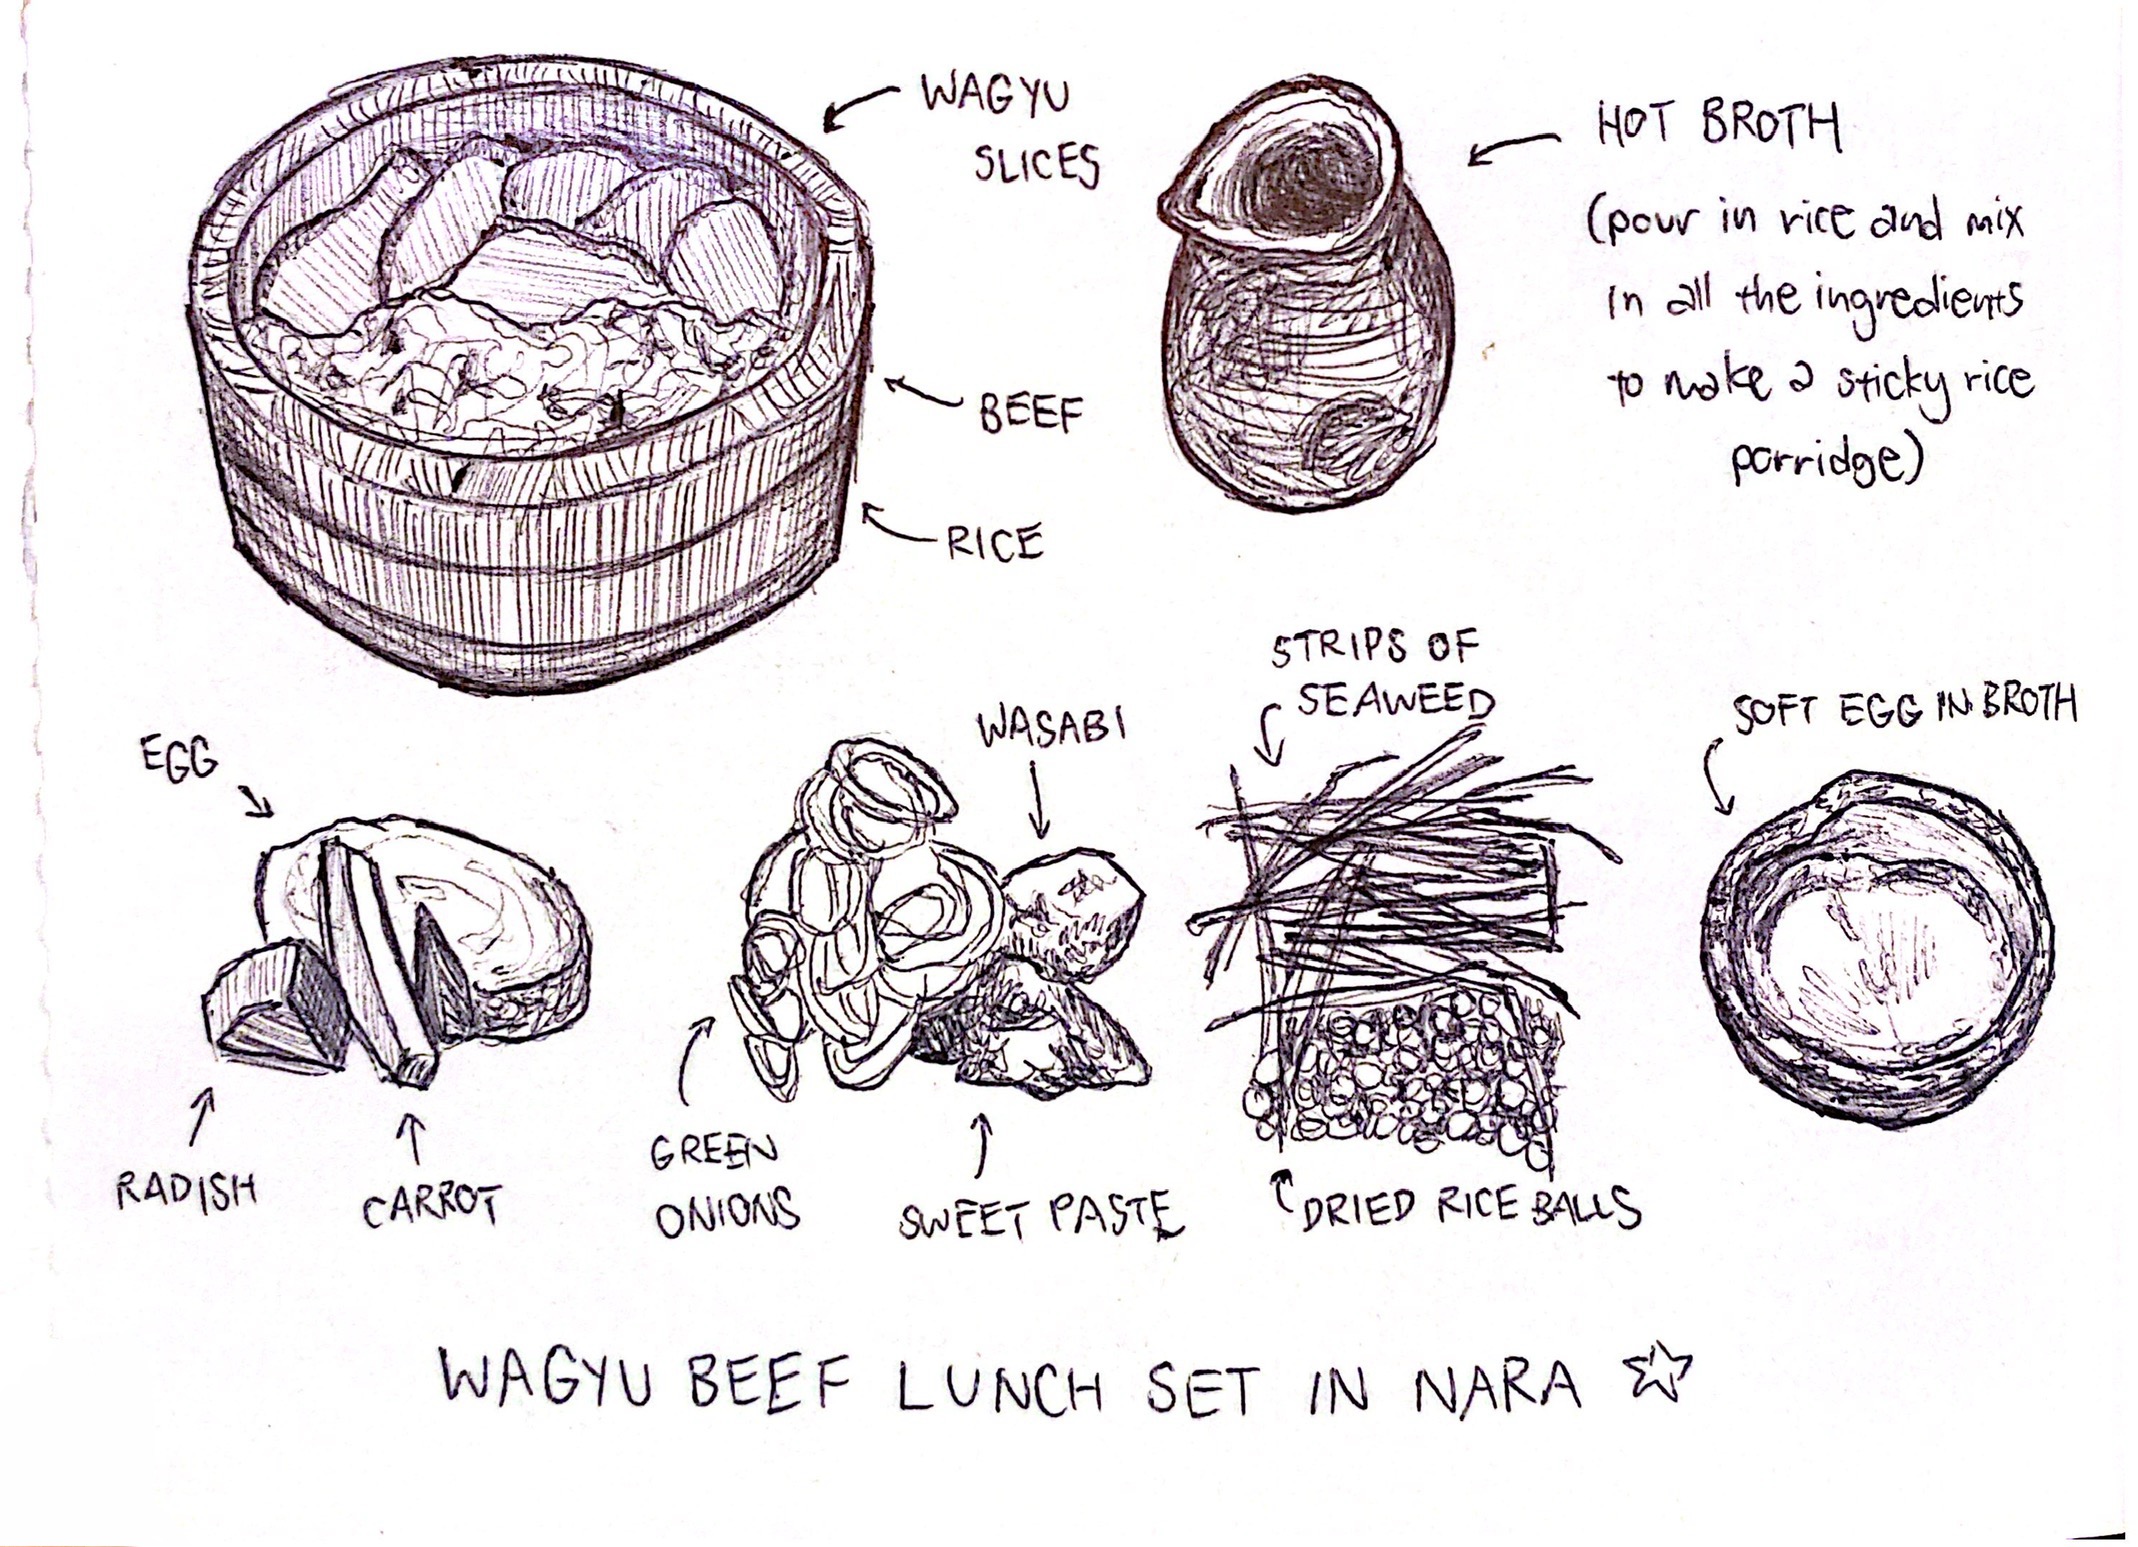 WAGYU
SLICES
BEEF
RICE
HOT BROTH
(pour in rice and mix
in all the ingredients
to make a sticky rice
porridge)
EGG
RADISH
CARROT
GREEN
ONIONS
WASABI
SWEET PASTE
STRIPS OF
SEAWEED
DRIED RICE BALLS
SOFT EGG IN BROTH
WAGYU BEEF LUNCH SET IN NARA ☆